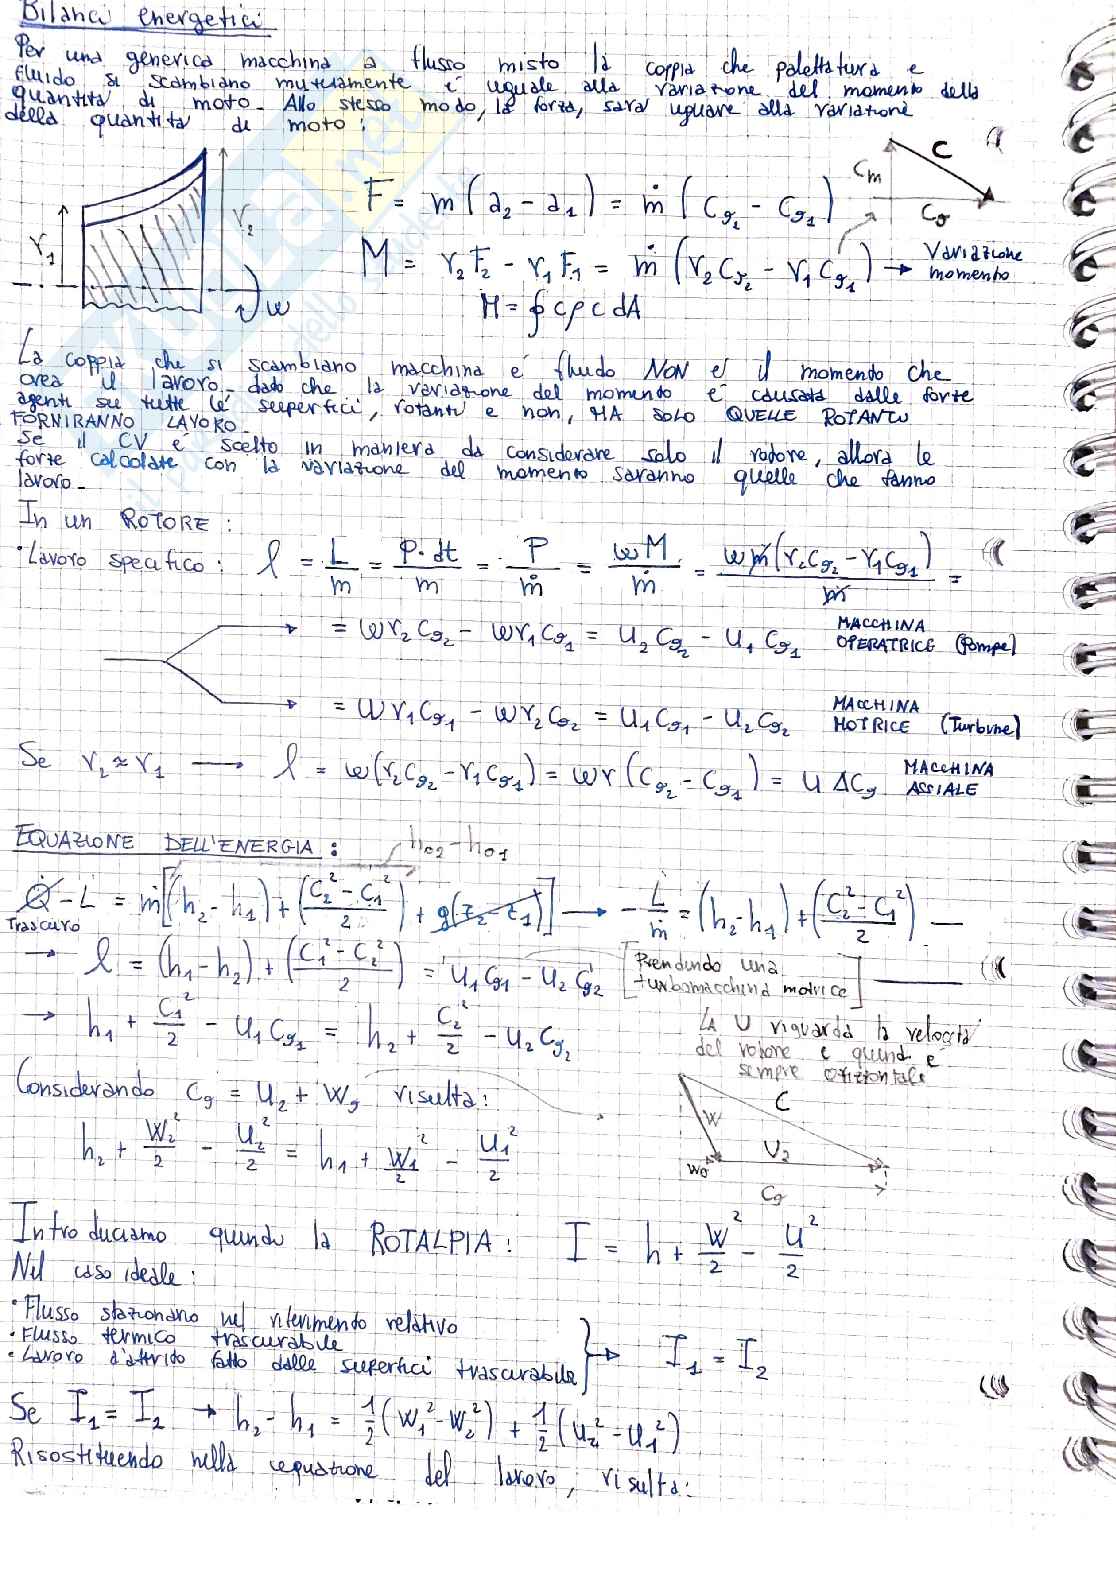 Bilanci energetici
Per una generica macchina a flusso misto la coppia che palettatura e
fluido si scambiano mutuamente è uguale alla variazione del momento della
quantità di moto. Allo stesso modo, la forza, sarà uguale alla variazione
della quantità di moto:
r₁ r₂ ω
C Cm Cϑ
F = m(a₂ - a₁) = ṁ(Cϑ₂ - Cϑ₁)
M = r₂F₂ - r₁F₁ = ṁ(r₂Cϑ₂ - r₁Cϑ₁) → Variazione momento
M = ∮ cρc dA
La coppia che si scambiano macchina e fluido NON è il momento che
crea il lavoro, dato che la variazione del momento è causata dalle forze
agenti su tutte le superfici, rotanti e non, MA SOLO QUELLE ROTANTI
FORNIRANNO LAVORO.
Se il CV è scelto in maniera da considerare solo il rotore, allora le
forze calcolate con la variazione del momento saranno quelle che fanno
lavoro.
In un ROTORE:
• Lavoro specifico: l = L/m = P·dt/m = P/ṁ = ωM/ṁ = ωṁ(r₂Cϑ₂ - r₁Cϑ₁)/ṁ =
= ωr₂Cϑ₂ - ωr₁Cϑ₁ = U₂Cϑ₂ - U₁Cϑ₁ MACCHINA OPERATRICE (Pompe)
= ωr₁Cϑ₁ - ωr₂Cϑ₂ = U₁Cϑ₁ - U₂Cϑ₂ MACCHINA MOTRICE (Turbine)
Se r₂ ≈ r₁ → l = ω(r₂Cϑ₂ - r₁Cϑ₁) = ωr(Cϑ₂ - Cϑ₁) = U ΔCϑ MACCHINA ASSIALE
EQUAZIONE DELL'ENERGIA: h₀₂ - h₀₁
Q̇ - L = ṁ[(h₂ - h₁) + (C₂² - C₁²)/2 + g(z₂ - z₁)] → -L/ṁ = (h₂ - h₁) + (C₂² - C₁²)/2
Trascuro
→ l = (h₁ - h₂) + (C₁² - C₂²)/2 = U₁Cϑ₁ - U₂Cϑ₂ [Prendendo una turbomacchina motrice]
→ h₁ + C₁²/2 - U₁Cϑ₁ = h₂ + C₂²/2 - U₂Cϑ₂
LA U riguarda la velocità
del rotore e quindi è
sempre orizzontale
Considerando Cϑ = U₂ + Wϑ risulta:
h₂ + W₂²/2 - U₂²/2 = h₁ + W₁²/2 - U₁²/2
W C Wϑ U₂ Cϑ
Introduciamo quindi la ROTALPIA: I = h + W²/2 - U²/2
Nel caso ideale:
• Flusso stazionario nel riferimento relativo
• Flusso termico trascurabile
• Lavoro d'attrito fatto dalle superfici trascurabile
→ I₁ = I₂
Se I₁ = I₂ → h₂ - h₁ = 1/2(W₁² - W₂²) + 1/2(U₂² - U₁²)
Risostituendo nella equazione del lavoro, risulta: